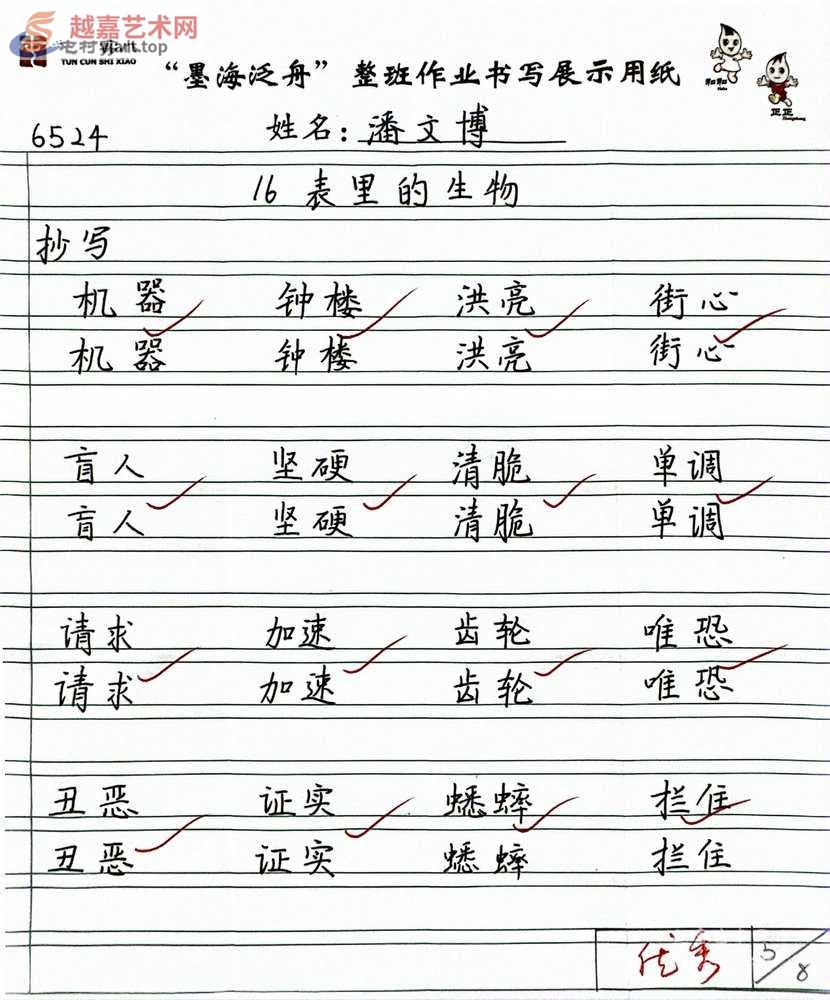 越嘉艺术网
yjart.top
屯村
TUN CUN SHI XIAO
“墨海泛舟”整班作业书写展示用纸
和和
Hehe
正正
Zhengzheng
6524
姓名：潘文博
16 表里的生物
抄写
机器 钟楼 洪亮 街心
机器 钟楼 洪亮 街心
盲人 坚硬 清脆 单调
盲人 坚硬 清脆 单调
请求 加速 齿轮 唯恐
请求 加速 齿轮 唯恐
丑恶 证实 蟋蟀 拦住
丑恶 证实 蟋蟀 拦住
优秀 5/8